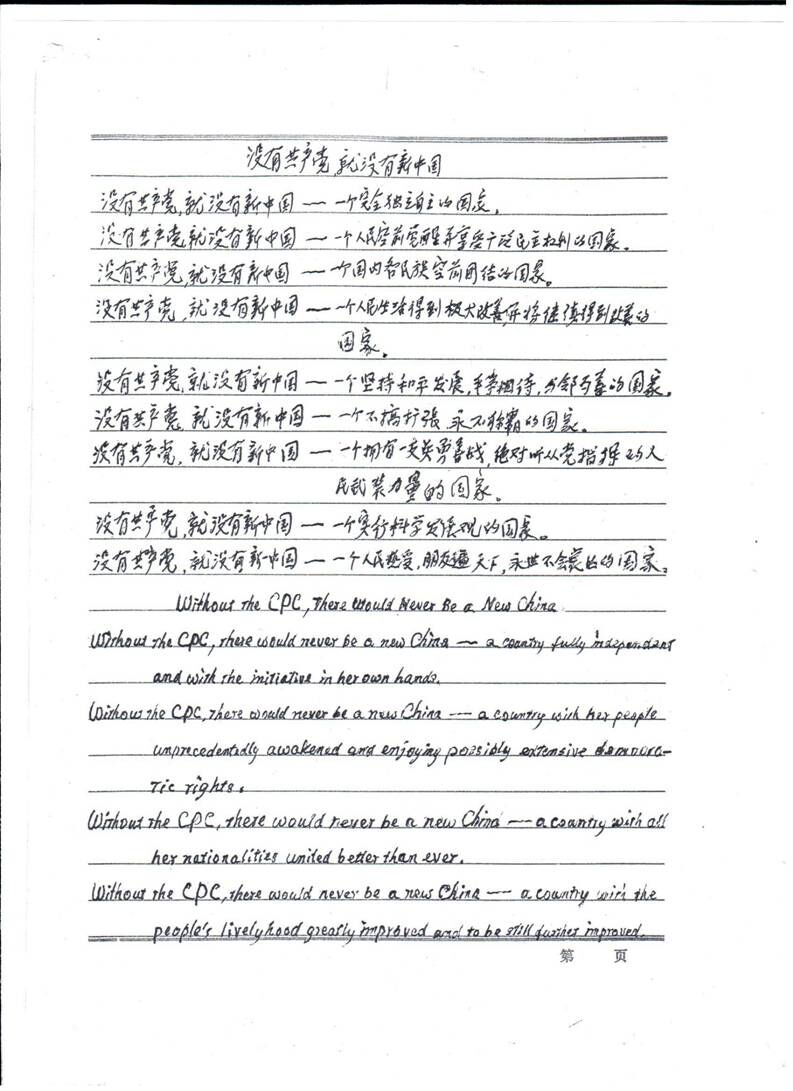 没有共产党,就没有新中国
没有共产党,就没有新中国 — 一个完全独立自主的国家。
没有共产党就没有新中国 — 一个人民空前觉醒并享受广泛民主权利的国家。
没有共产党,就没有新中国 — 一个国内各民族空前团结的国家。
没有共产党,就没有新中国 — 一个人民生活得到极大改善并将继续得到改善的
国家。
没有共产党,就没有新中国 — 一个坚持和平发展,平等相待,与邻为善的国家。
没有共产党,就没有新中国 — 一个不搞扩张 永不称霸的国家。
没有共产党,就没有新中国 — 一个拥有一支英勇善战,绝对听从党指挥的人
民武装力量的国家。
没有共产党,就没有新中国 — 一个实行科学发展观的国家。
没有共产党,就没有新中国 — 一个人民热爱,朋友遍天下,永世不会衰败的国家。
Without the CPC, There Would Never Be a New China
Without the CPC, there would never be a new China — a country fully independent
and with the initiative in her own hands.
Without the CPC, there would never be a new China — a country with her people
unprecedentadly awakened and enjoying possibly extensive democra-
tic rights.
Without the CPC, there would never be a new China — a country with all
her nationalities united better than ever.
Without the CPC, there would never be a new China — a country with the
people's livelyhood greatly improved and to be still further improved.
第 页